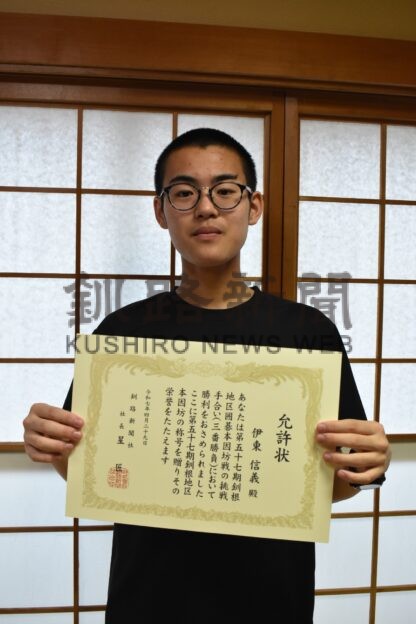 釧路新聞
KUSHIRO NEWS WEB
允許状
伊東信義 殿
あなたは第五十七期釧根
地区囲碁本因坊戦の挑戦
手合い(三番勝負)において
勝利をおさめられました
ここに第五十七期釧根地区
本因坊の称号を贈りその
栄誉をたたえます
令和七年四月二十九日
釧路新聞社
社長 星 匠